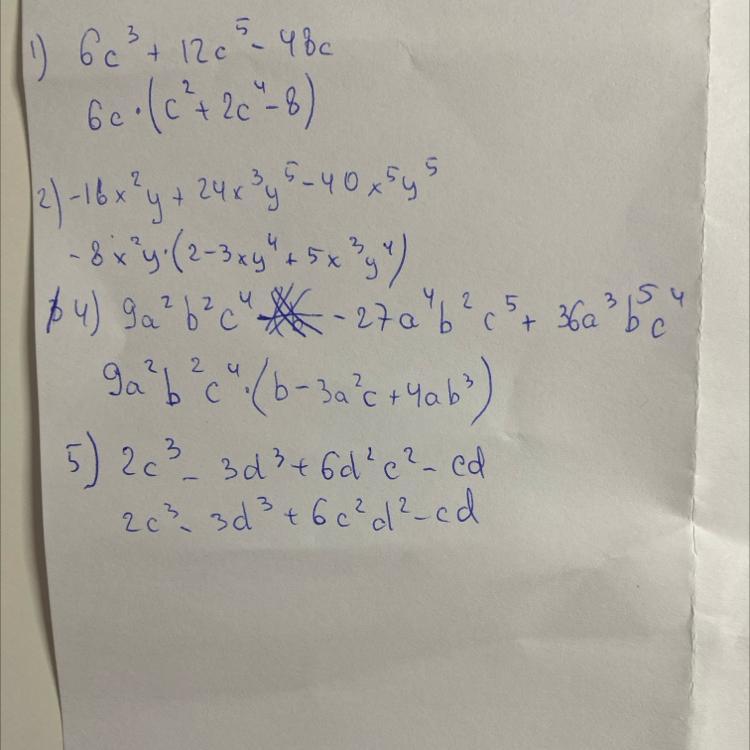 1) 6c³ + 12c⁵ - 48c
6c · (c² + 2c⁴ - 8)
2) -16x²y + 24x³y⁵ - 40x⁵y⁵
- 8x²y · (2 - 3xy⁴ + 5x³y⁴)
4) 9a²b²c⁴ - 27a⁴b²c⁵ + 36a³b⁵c⁴
9a²b²c⁴ · (b - 3a²c + 4ab³)
5) 2c³ - 3d³ + 6d²c² - cd
2c³ - 3d³ + 6c²d² - cd